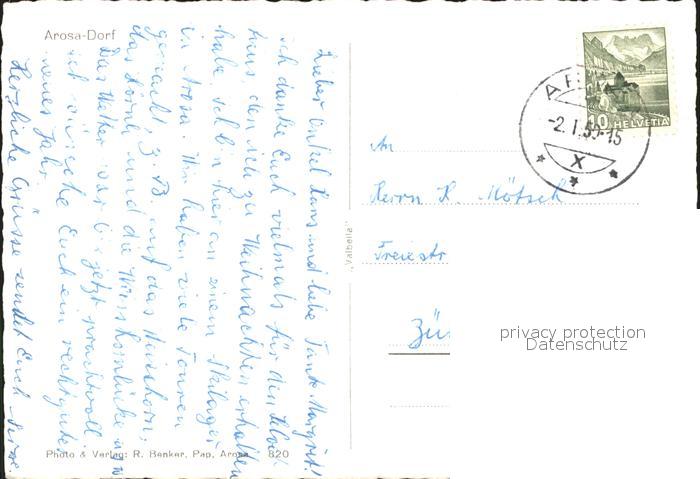 Arosa-Dorf
Lieber Onkel Hans und liebe Tante Margrit!
ich danke Euch vielmals für den
den ich zu Weihnachten erhalten
habe. Ich bin hier an einem Skilager
in Arosa. Wir haben viele Touren
gemacht, z. B. auf das Weisshorn,
das Hörnli und die
Das Wetter war bis jetzt prachtvoll.
ich wünsche Euch ein recht gutes
neues Jahr.
Herzliche Grüsse sendet Euch
Photo & Verlag: R. Benker, Pap, Arosa 820
„Valbella"
HELVETIA
10
-2.I.
15
X
An
Herrn H. Mötsch
Freiestr
Zü
privacy protection
Datenschutz